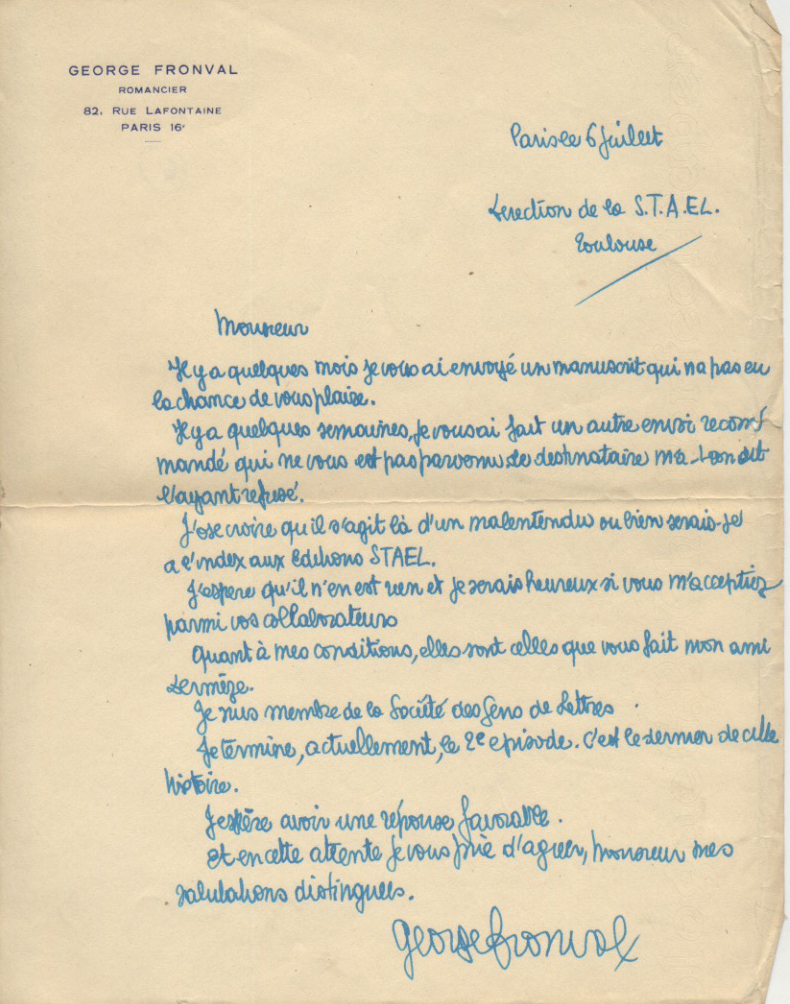 GEORGE FRONVAL
ROMANCIER
82, RUE LAFONTAINE
PARIS 16e
Paris le 6 Juillet
Direction de la S.T.A.E.L.
Toulouse
Monsieur
Il y a quelques mois je vous ai envoyé un manuscrit qui n'a pas eu
la chance de vous plaire.
Il y a quelques semaines, je vous ai fait un autre envoi recom-
mandé qui ne vous est pas parvenu le destinataire m'a-t-on dit
l'ayant refusé.
J'ose croire qu'il s'agit là d'un malentendu ou bien serais-je
a l'index aux Editions STAEL.
J'espere qu'il n'en est rien et je serais heureux si vous m'acceptiez
parmi vos collaborateurs
Quant à mes conditions, elles sont celles que vous fait mon ami
Dermèze.
Je suis membre de la Société des Gens de Lettres.
Je termine, actuellement, le 2e episode. C'est le dernier de cette
histoire.
J'espère avoir une réponse favorable.
Et en cette attente je vous prie d'agréer, Monsieur mes
salutations distinguées.
George Fronval